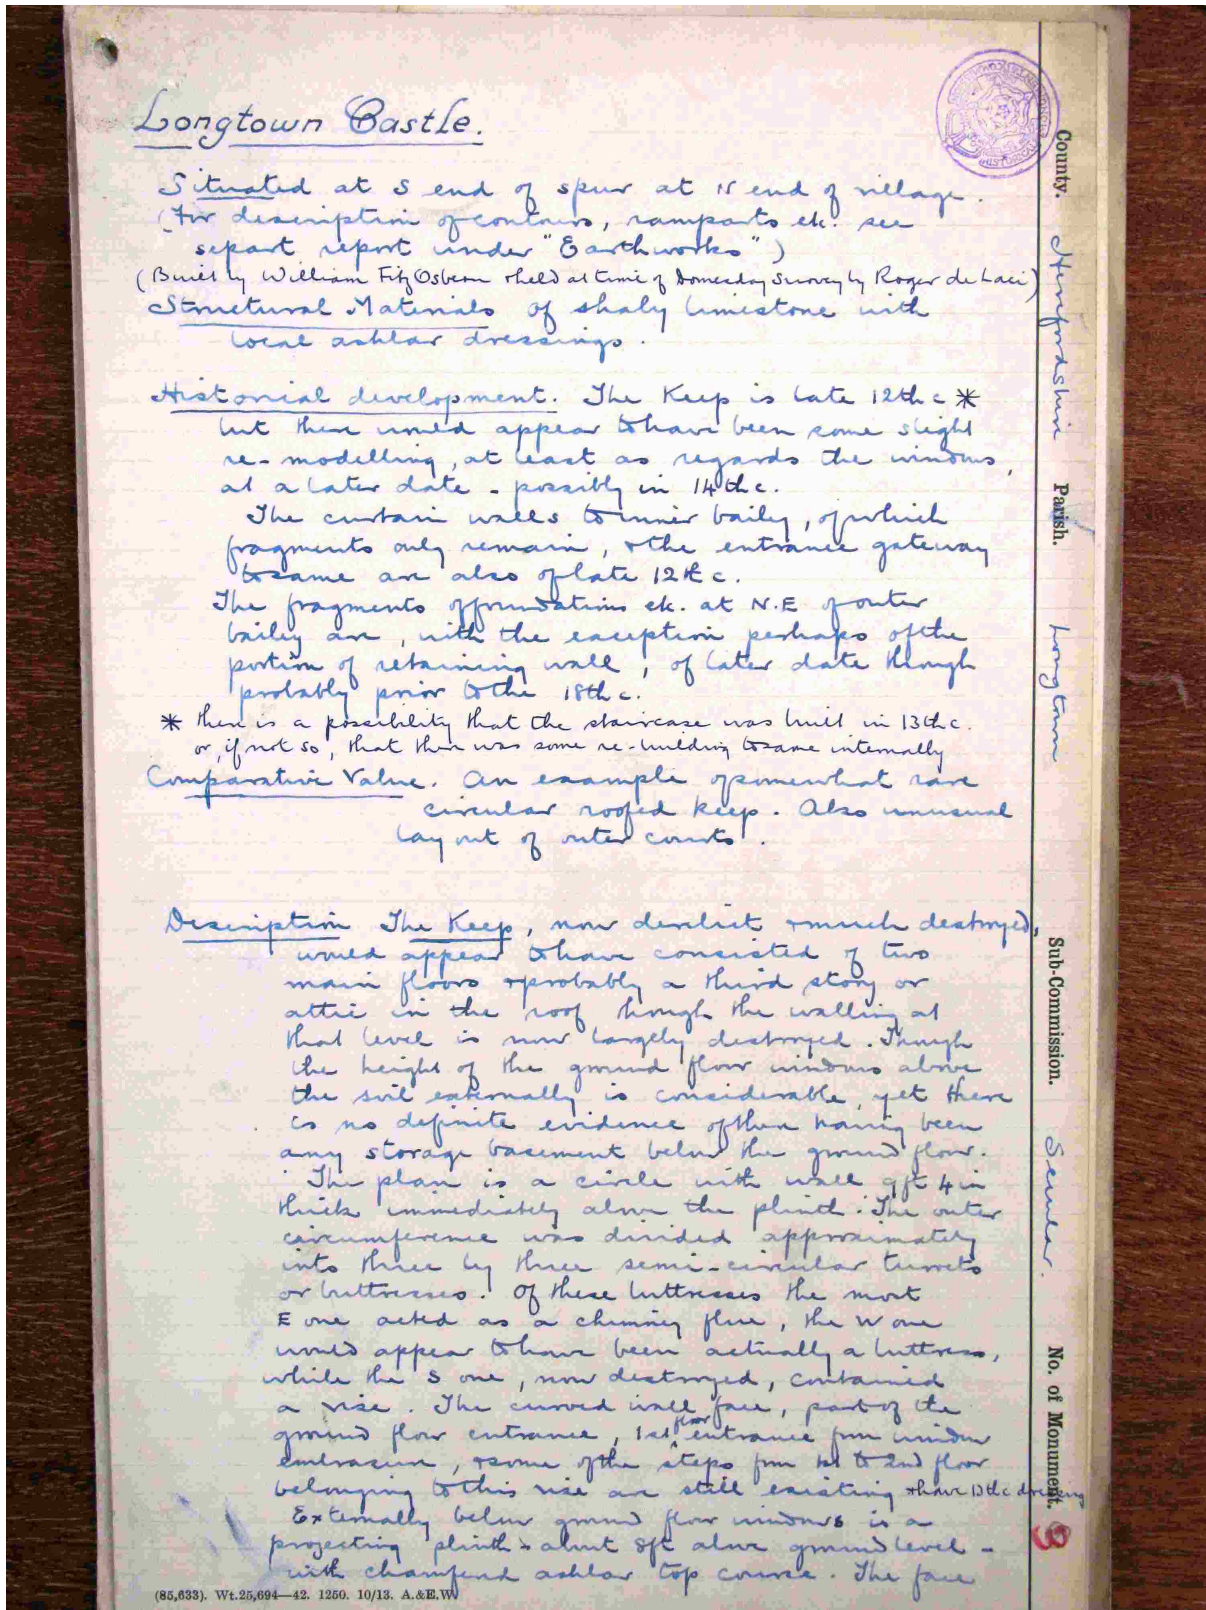 Longtown Castle.
Situated at S end of spur at N end of village.
(For description of contours, ramparts etc. see
separt report under "Earthworks")
(Built by William Fitz Osbern & held at time of Domesday Survey by Roger de Laci)
Structural Materials of shaly limestone with
local ashlar dressings.
Historial development. The Keep is late 12th c *
but there would appear to have been some slight
re-modelling, at least as regards the windows,
at a later date - possibly in 14th c.
The curtain walls to inner bailey, of which
fragments only remain, & the entrance gateway
to same are also of late 12th c.
The fragments of foundations etc. at N.E of outer
bailey are, with the exception perhaps of the
portion of retaining wall, of later date though
probably prior to the 18th c.
* there is a possibility that the staircase was built in 13th c.
or, if not so, that there was some re-building to same internally
Comparative Value. An example of somewhat rare
circular roofed keep. Also unusual
lay out of outer courts.
Description The Keep, now derelict & much destroyed,
would appear to have consisted of two
main floors & probably a third story or
attic in the roof though the walling at
that level is now largely destroyed. Though
the height of the ground floor windows above
the soil externally is considerable, yet there
is no definite evidence of there having been
any storage basement below the ground floor.
The plan is a circle with wall 9ft 4in
thick immediately above the plinth. The outer
circumference was divided approximately
into three by three semi-circular turrets
or buttresses. Of these buttresses the most
E one acted as a chimney flue, the W one
would appear to have been actually a buttress,
while the S one, now destroyed, contained
a vise. The curved wall face, part of the
ground floor entrance, 1st floor entrance from window
embrasure, & some of the steps from 1st to 2nd floor
belonging to this vise are still existing & have 13th c dressing
Externally below ground floor windows is a
projecting plinth - about 8ft above ground level -
with chamfered ashlar top course. The face
(85,633). Wt.25,694—42. 1250. 10/13. A.&E.W.
County. Herefordshire Parish. Longtown Sub-Commission. Secular. No. of Monument. 3